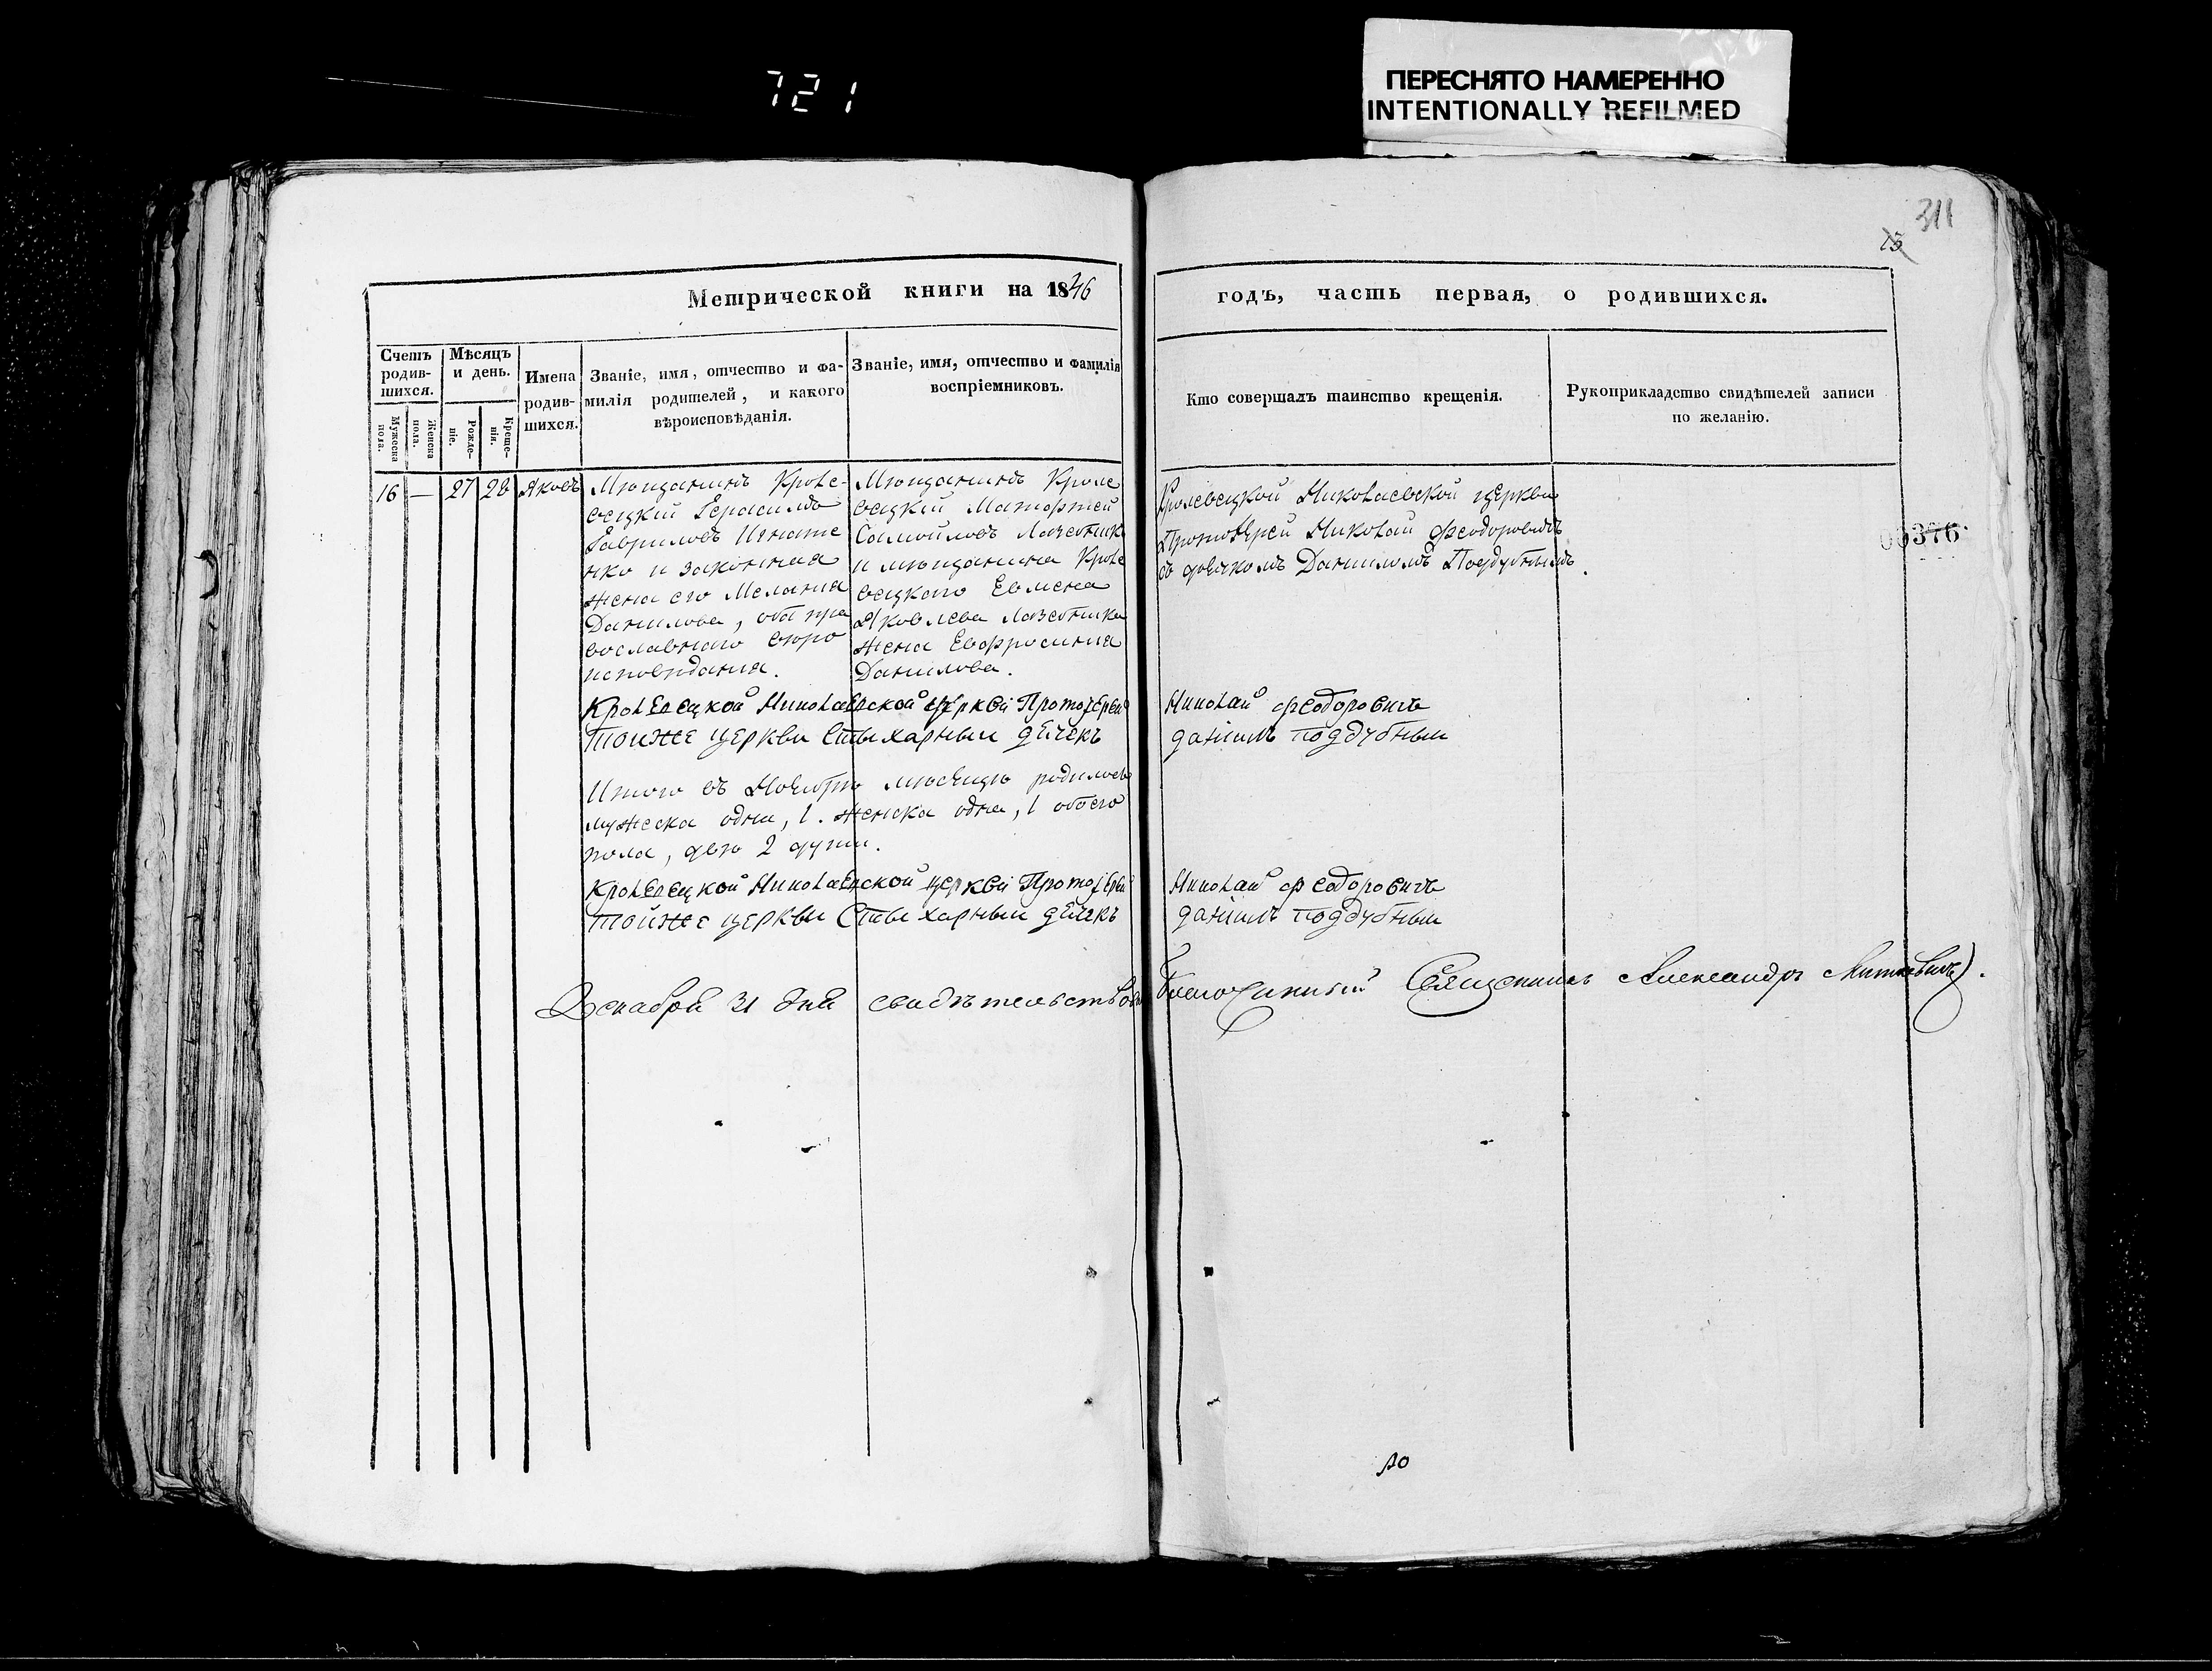 721
ПЕРЕСНЯТО НАМЕРЕННО
INTENTIONALLY REFILMED
311
15
Метрической книги на 1846
годъ, часть первая, о родившихся.
Счетъ родив-шихся.
Мѣсяцъ и день.
Имена родив-шихся.
Званіе, имя, отчество и фа-
милія родителей, и какого
вѣроисповѣданія.
Званіе, имя, отчество и фамилія
воспріемниковъ.
Кто совершалъ таинство крещенія.
Рукоприкладство свидѣтелей записи
по желанію.
Мужеска пола.
Женска пола.
Рожде-ніе.
Креще-нія.
16 — 27 28 Яковъ
Мѣщанинъ Кроле-
вецкій Герасимъ
Гавриловъ Игнате
нко и законная
жена его Мелания
Данилова, оба пра
вославнаго вѣро
исповѣданія.
Мѣщанинъ Кроле
вецкій Матѳей
Самойловъ
и мѣщанина Кроле
вецкаго Евмена
Яковлева
жена Евфросинія
Данилова.
Кролевецкой Николаевской церкви
Протоіерей Николай Феодоровичъ
съ дьячкомъ Даниломъ Поддубнымъ.
00376
Кролевецкой Николаевской церкви Протоіерей Николай Феодоровичъ
тойже церкви Стыхарный дьячекъ Даніилъ Поддубный
Итого въ Ноябрѣ мѣсяцѣ родилось
мужеска одна, 1. женска одна, 1 обоего
пола, двѣ 2 души.
Кролевецкой Николаевской церкви Протоіерей Николай Феодоровичъ
тойже церкви Стыхарный дьячекъ Даніилъ Поддубный
Декабря 31 дня свидѣтельствовалъ Благочинный Священникъ Александръ